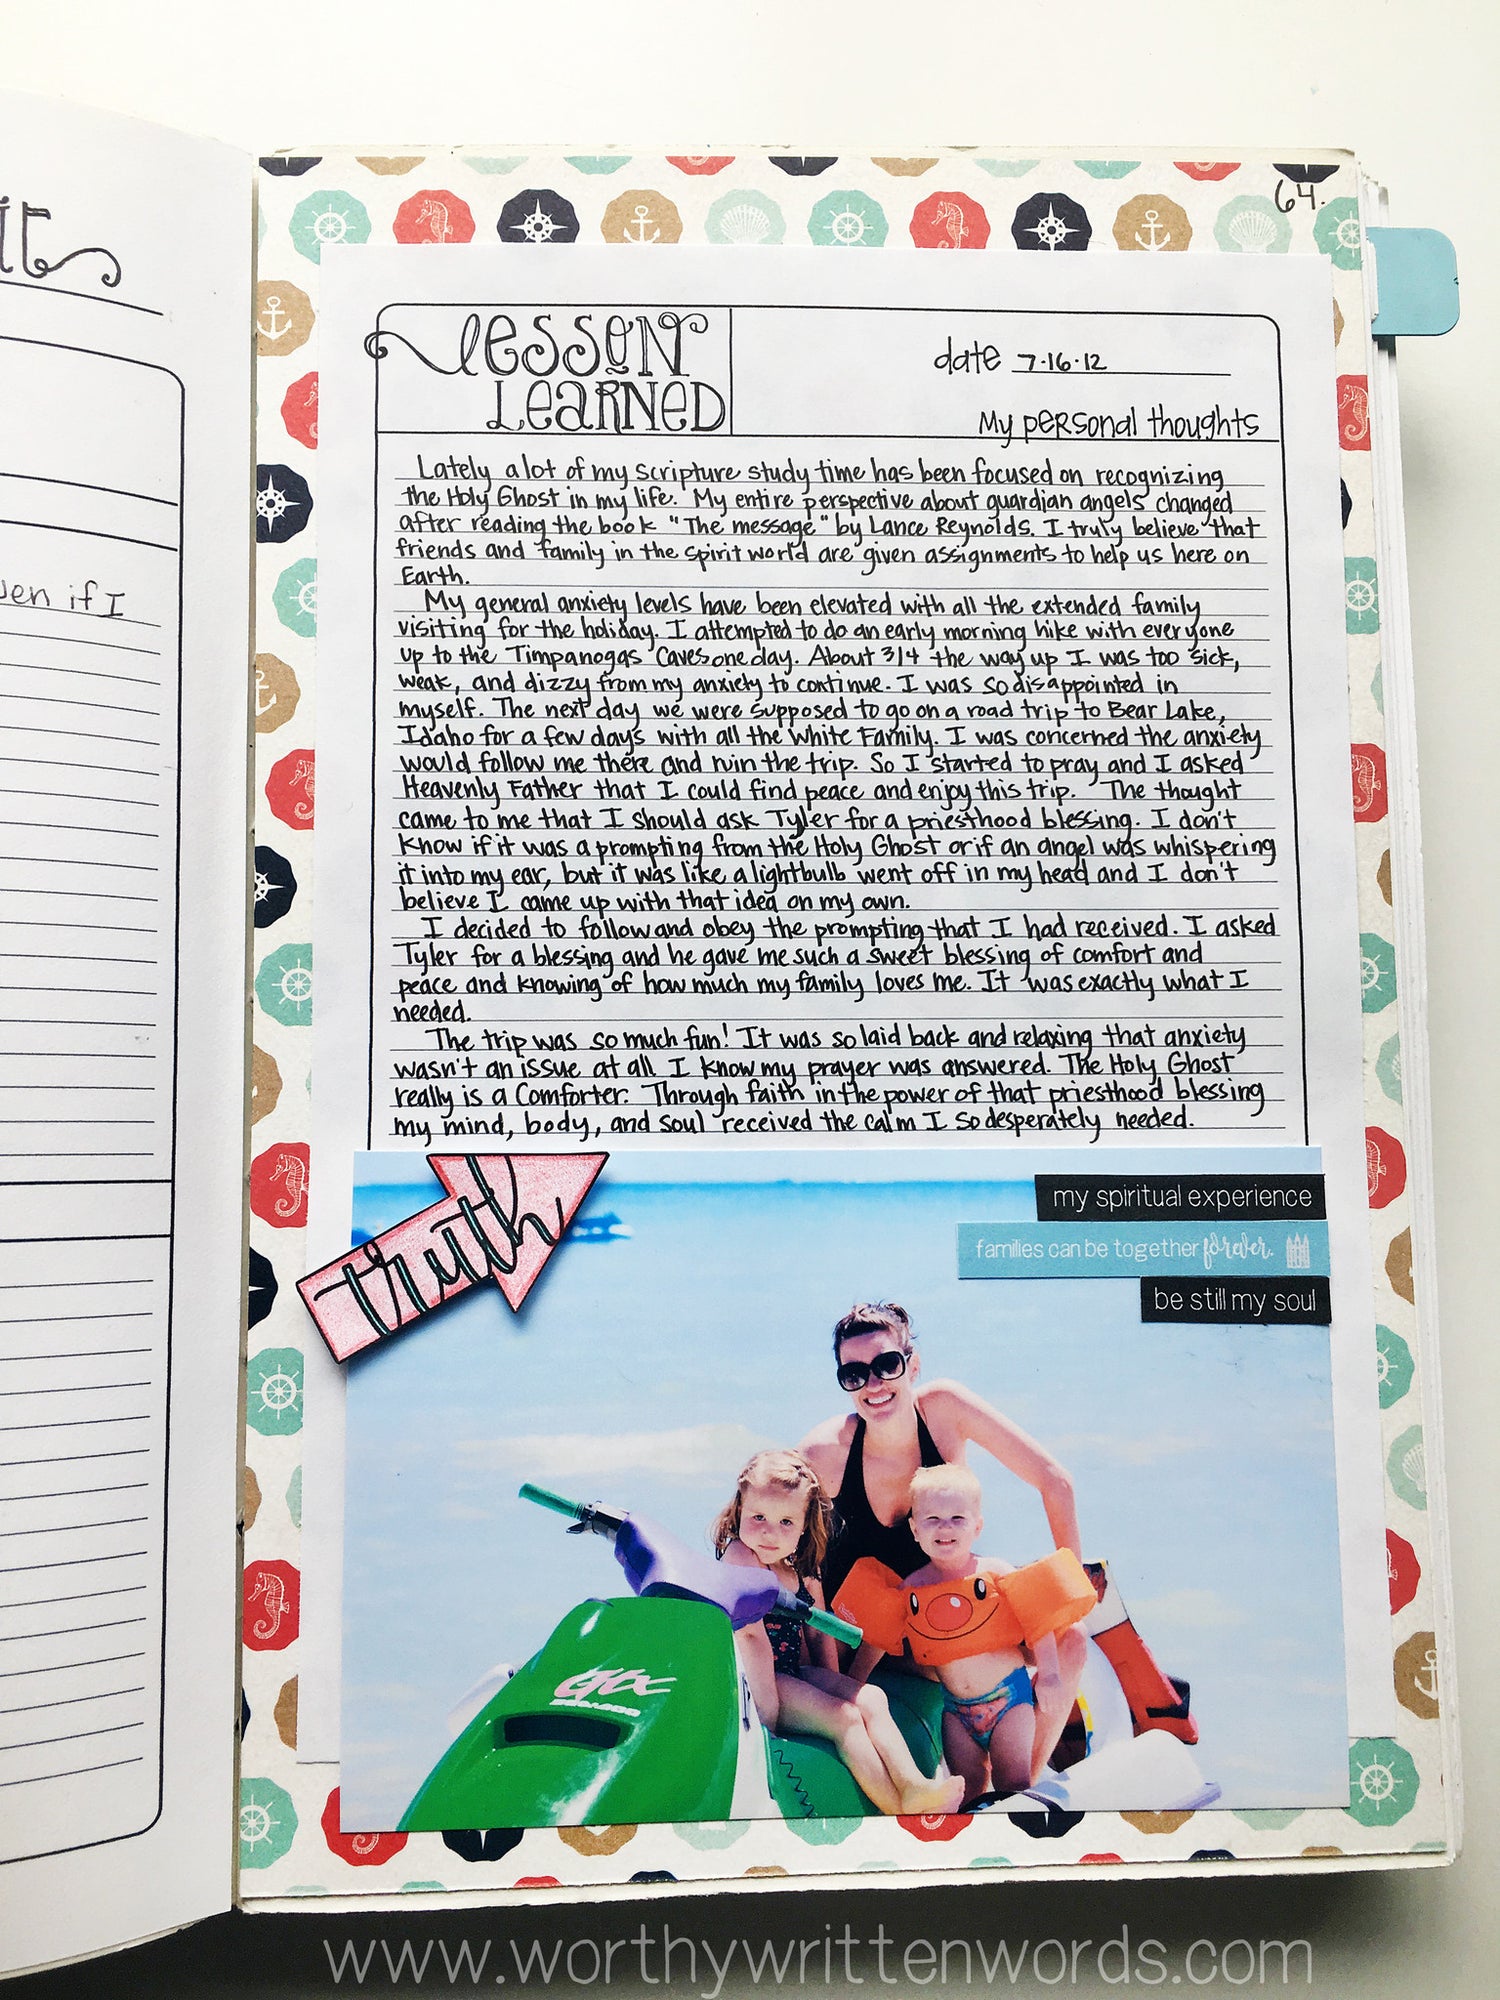 ven if I
64.
lesson
Learned
date 7.16.12
My personal thoughts
Lately a lot of my scripture study time has been focused on recognizing
the Holy Ghost in my life. My entire perspective about guardian angels changed
after reading the book "The message" by Lance Reynolds. I truly believe that
friends and family in the spirit world are given assignments to help us here on
Earth.
My general anxiety levels have been elevated with all the extended family
visiting for the holiday. I attempted to do an early morning hike with everyone
up to the Timpanogas Caves one day. About 3/4 the way up I was too sick,
weak, and dizzy from my anxiety to continue. I was so disappointed in
myself. The next day we were supposed to go on a road trip to Bear Lake,
Idaho for a few days with all the White Family. I was concerned the anxiety
would follow me there and ruin the trip. So I started to pray and I asked
Heavenly Father that I could find peace and enjoy this trip. The thought
came to me that I should ask Tyler for a priesthood blessing. I don't
know if it was a prompting from the Holy Ghost or if an angel was whispering
it into my ear, but it was like a lightbulb went off in my head and I don't
believe I came up with that idea on my own.
I decided to follow and obey the prompting that I had received. I asked
Tyler for a blessing and he gave me such a sweet blessing of comfort and
peace and knowing of how much my family loves me. It was exactly what I
needed.
The trip was so much fun! It was so laid back and relaxing that anxiety
wasn't an issue at all. I know my prayer was answered. The Holy Ghost
really is a Comforter. Through faith in the power of that priesthood blessing
my mind, body, and soul received the calm I so desperately needed.
truth
my spiritual experience
families can be together forever.
be still my soul
GTX
SEA-DOO
www.worthywrittenwords.com